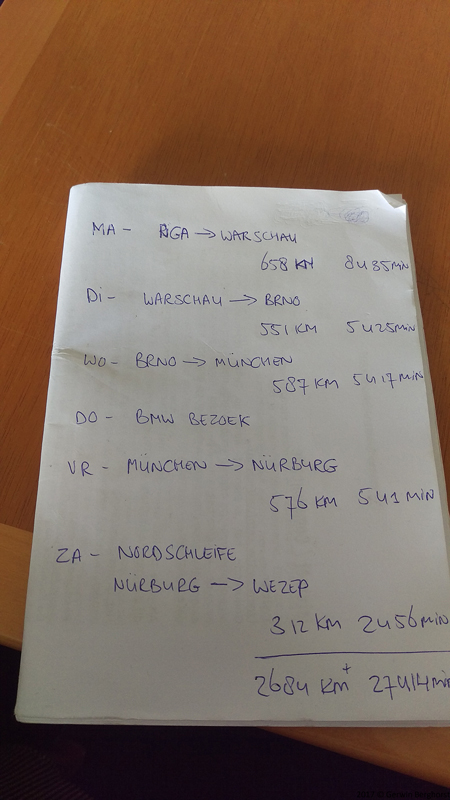 MA - RIGA → WARSCHAU
658 KM 8U 35MIN
DI - WARSCHAU → BRNO
551 KM 5U25MIN
WO - BRNO → MÜNCHEN
587 KM 5U17MIN
DO - BMW BEZOEK
VR - MÜNCHEN → NÜRBURG
576 KM 5U1 MIN
ZA - NORDSCHLEIFE
NÜRBURG → WEZEP
312 KM 2U56MIN
2684 KM + 27U14MIN